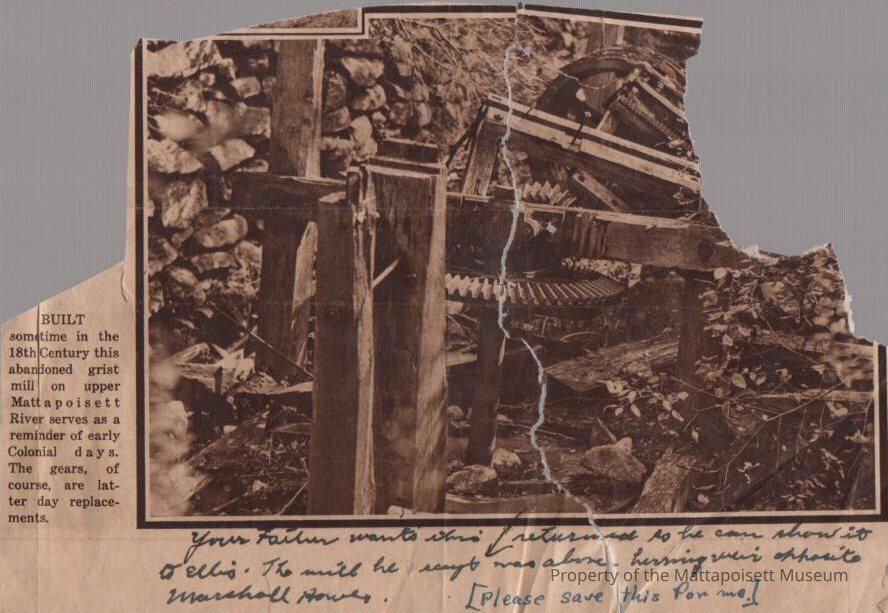 BUILT
sometime in the
18th Century this
abandoned grist
mill on upper
Mattapoisett
River serves as a
reminder of early
Colonial days.
The gears, of
course, are lat-
ter day replace-
ments.
Your Father wants this returned so he can show it
to Ellis. The mill he says was above herring weir opposite
Marshall Howes.
[Please save this for me.]
Property of the Mattapoisett Museum